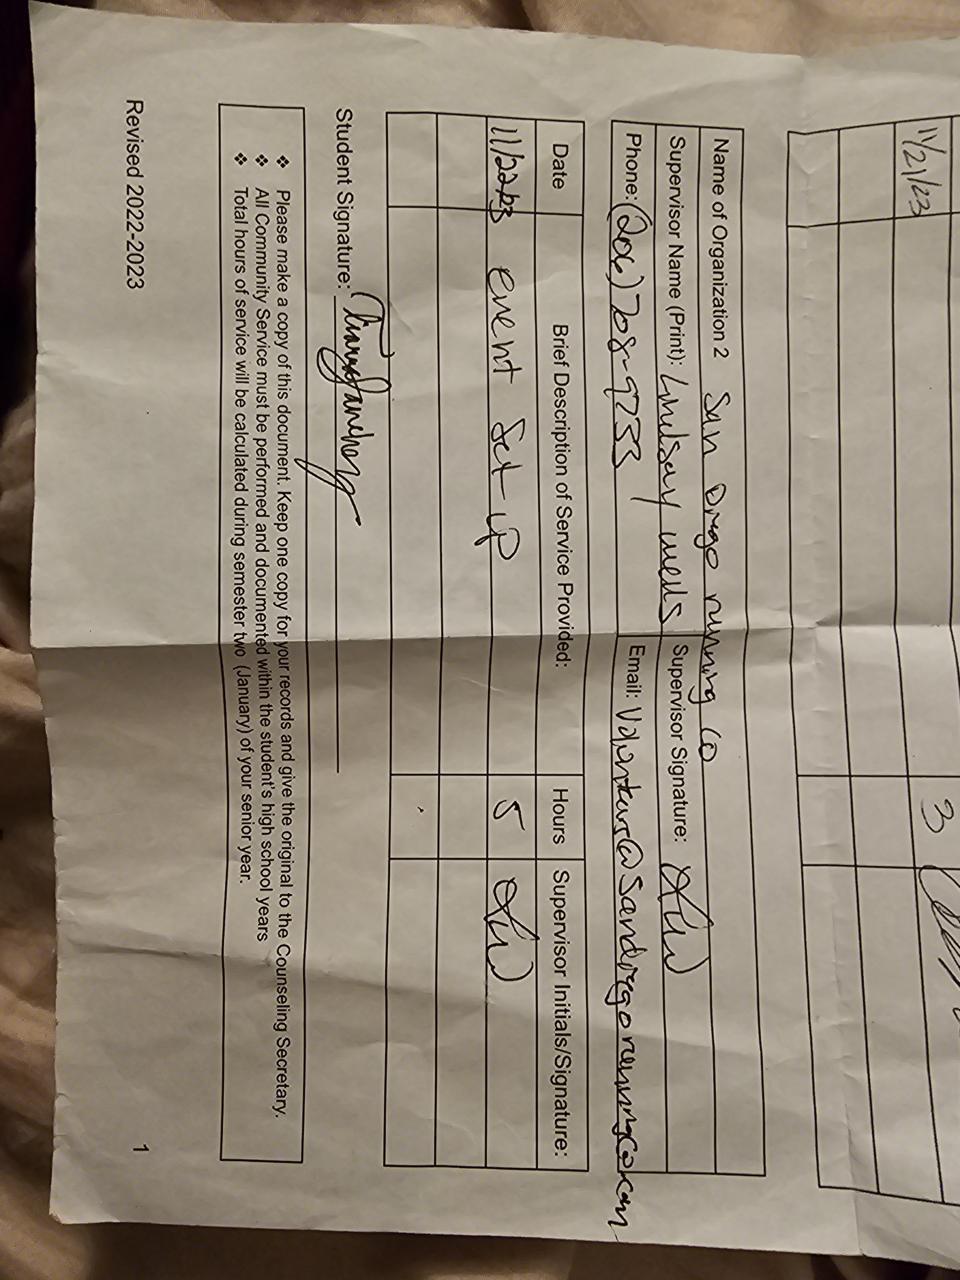 11/21/23 3
Name of Organization 2 San Diego running co
Supervisor Name (Print): Lindsay wells Supervisor Signature: LW
Phone: (206) 708-9233 Email: Volunteers@sandiegorunningco.com
Date Brief Description of Service Provided: Hours Supervisor Initials/Signature:
11/22/23 event set-up 5 LW
Student Signature:
❖ Please make a copy of this document. Keep one copy for your records and give the original to the Counseling Secretary.
❖ All Community Service must be performed and documented within the student's high school years
❖ Total hours of service will be calculated during semester two (January) of your senior year.
Revised 2022-2023 1